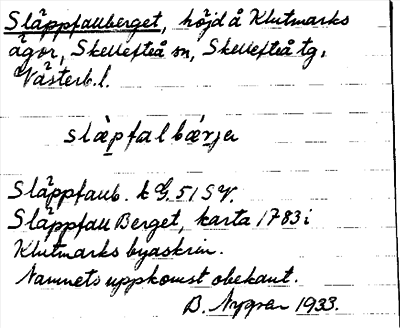 Släppfallberget, höjd å Klutmarks
ägor, Skellefteå sn, Skellefteå tg,
Västerb. l.
släpfalbärja
Släppfaub. k G. 51 SV.
Släppfall Berget, karta 1783 i
Klutmarks byaskrin.
Namnets uppkomst obekant.
B. Nygren 1933.